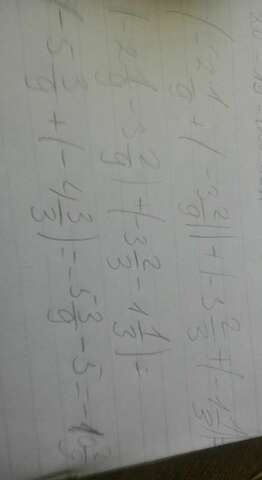 (-2 1/9 + (-3 2/9)) + (-3 2/3 + (-1 1/3) =
(-2 1/9 - 3 2/9) + (-3 2/3 - 1 1/3) =
(-5 3/9 + (-4 3/3) = -5 3/9 - 5 =